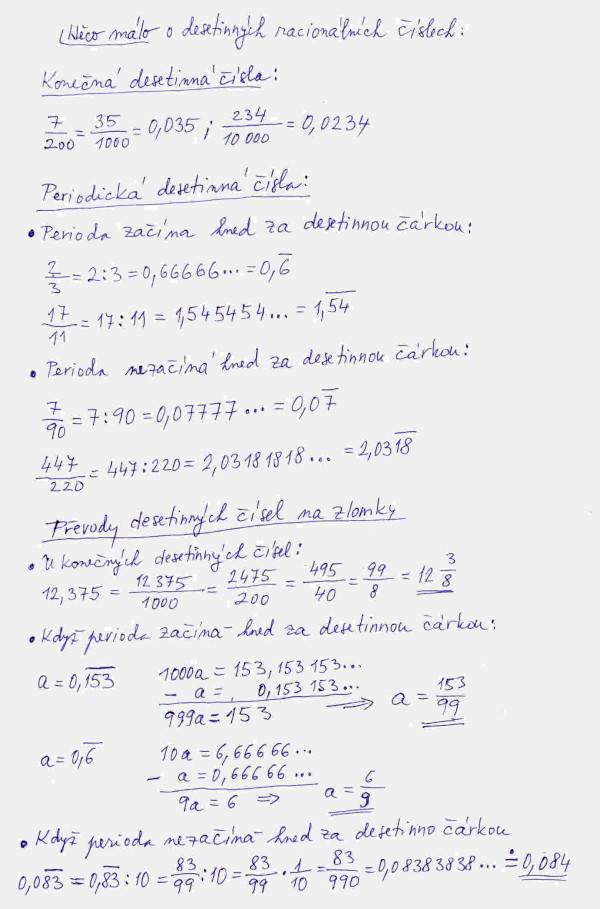 Něco málo o desetinných racionálních číslech:
Konečná desetinná čísla:
7/200 = 35/1000 = 0,035 ; 234/10 000 = 0,0234
Periodická desetinná čísla:
• Perioda začíná hned za desetinnou čárkou:
2/3 = 2:3 = 0,66666... = 0,6̅
17/11 = 17:11 = 1,545454... = 1,5̅4̅
• Perioda nezačíná hned za desetinnou čárkou:
7/90 = 7:90 = 0,07777... = 0,07̅
447/220 = 447:220 = 2,03181818... = 2,031̅8̅
Převody desetinných čísel na zlomky
• U konečných desetinných čísel:
12,375 = 12 375/1000 = 2475/200 = 495/40 = 99/8 = 12 3/8
• Když perioda začíná hned za desetinnou čárkou:
a = 0,1̅5̅3̅ 1000a = 153,153 153...
- a = 0,153 153... ⟹ a = 153/99
999a = 153
a = 0,6̅ 10a = 6,66666...
- a = 0,66666...
9a = 6 ⟹ a = 6/9
• Když perioda nezačíná hned za desetinno čárkou
0,08̅3̅ = 0,8̅3̅ : 10 = 83/99 : 10 = 83/99 · 1/10 = 83/990 = 0,08383838... ≐ 0,084